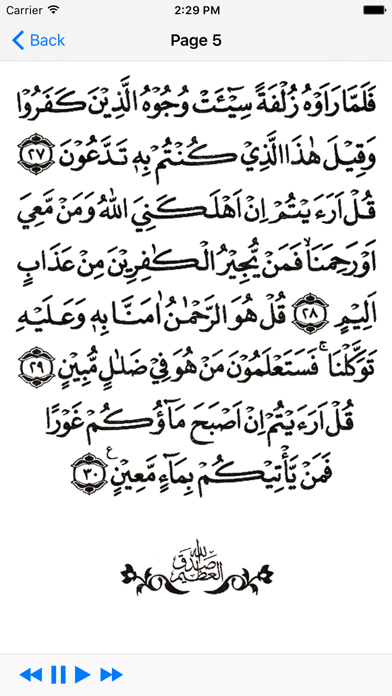 Carrier 2:29 PM
Back Page 5
فَلَمَّا رَاَوْهُ زُلْفَةً سِيْٓئَتْ وُجُوْهُ الَّذِيْنَ كَفَرُوْا
وَقِيْلَ هٰذَا الَّذِيْ كُنْتُمْ بِهٖ تَدَّعُوْنَ ٢٧
قُلْ اَرَءَيْتُمْ اِنْ اَهْلَكَنِيَ اللّٰهُ وَمَنْ مَّعِيَ
اَوْ رَحِمَنَاۙ فَمَنْ يُّجِيْرُ الْكٰفِرِيْنَ مِنْ عَذَابٍ
اَلِيْمٍ ٢٨ قُلْ هُوَ الرَّحْمٰنُ اٰمَنَّا بِهٖ وَعَلَيْهِ
تَوَكَّلْنَاۚ فَسَتَعْلَمُوْنَ مَنْ هُوَ فِيْ ضَلٰلٍ مُّبِيْنٍ ٢٩
قُلْ اَرَءَيْتُمْ اِنْ اَصْبَحَ مَآؤُكُمْ غَوْرًا
فَمَنْ يَّأْتِيْكُمْ بِمَآءٍ مَّعِيْنٍ ࣖ ٣٠
صدق الله العظيم